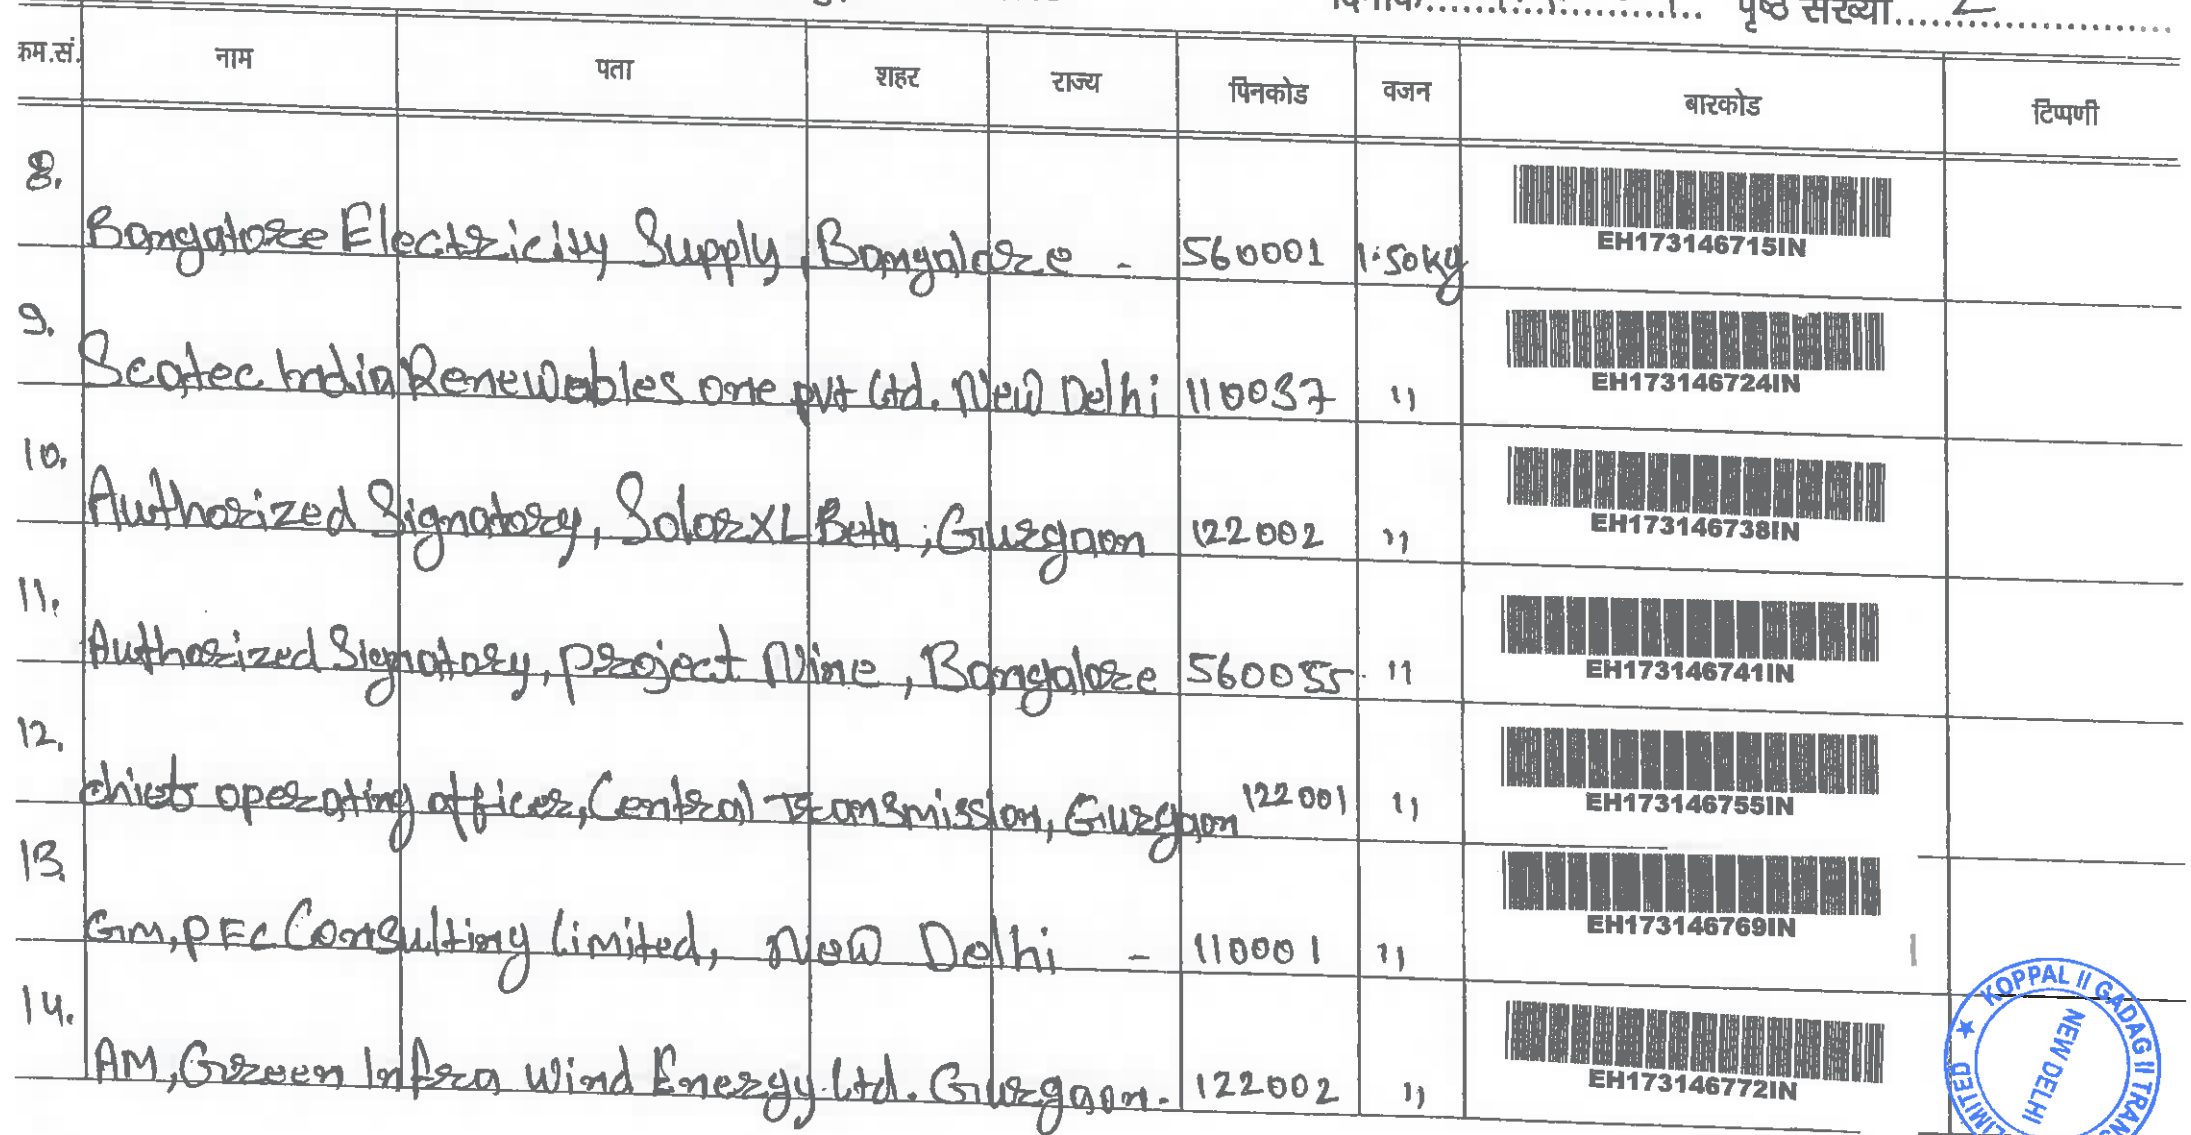 दिनांक.................... पृष्ठ संख्या....2....................
क्रम.सं. नाम पता शहर राज्य पिनकोड वजन बारकोड टिप्पणी
8. Bangalore Electricity Supply, Bangalore - 560001 1.50kg EH173146715IN
9. Scatec India Renewables one pvt Ltd. New Delhi 110037 " EH173146724IN
10. Authorized Signatory, SolarXL Beta, Gurgaon 122002 " EH173146738IN
11. Authorized Signatory, Project Nine, Bangalore 560055 " EH173146741IN
12. chief operating officer, Central Transmission, Gurgaon 122001 " EH173146755IN
13. GM, PFC Consulting Limited, New Delhi - 110001 " EH173146769IN
14. AM, Green Infra Wind Energy Ltd. Gurgaon. 122002 " EH173146772IN
KOPPAL II GADAG II TRANS
LIMITED ★
NEW DELHI